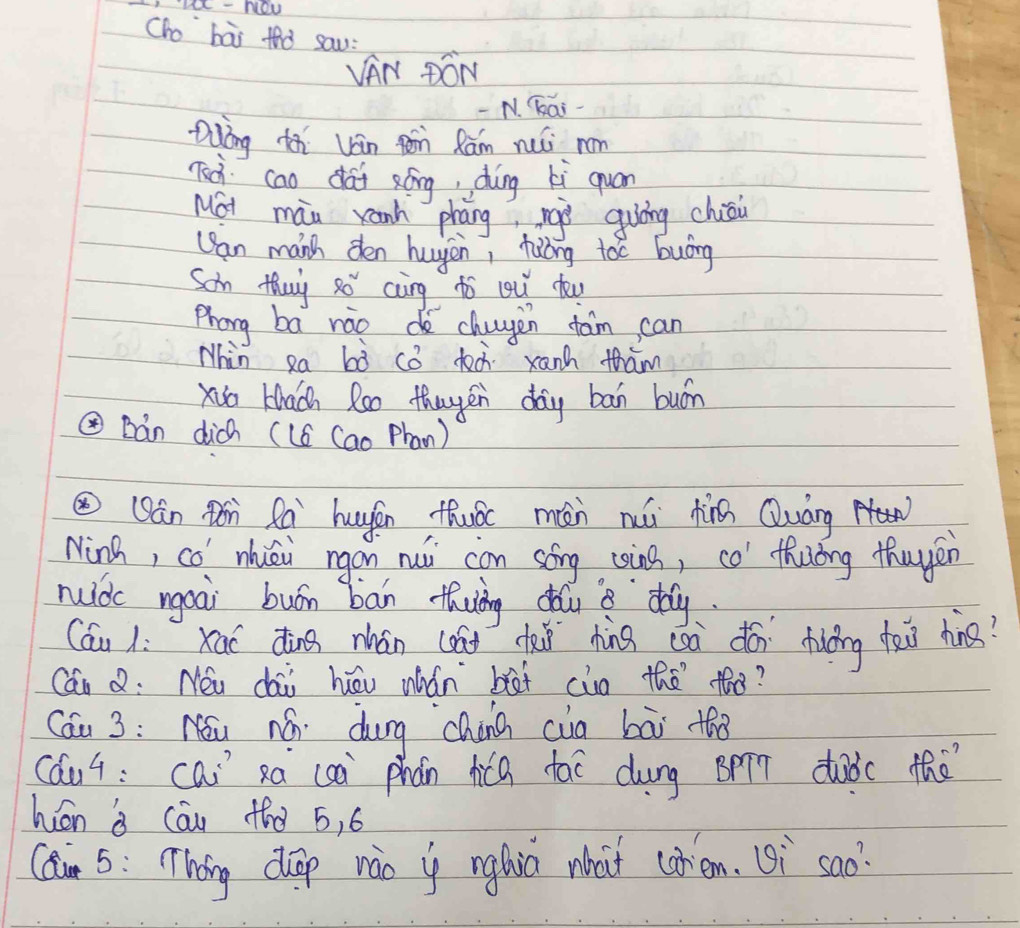 Cho bài thơ sau:
VÂN ĐỒN
- N. Trãi -
Đường tới Vân Đồn lắm núi non
Trời cao đất rộng, dúng kì quan
Một màu xanh phẳng, ngờ gương chiếu
Vạn mảnh đen huyền, tưởng tóc buông
Sơn thuỷ rõ cùng tô vũ trụ
Phong ba nào dễ chuyển tâm can
Nhìn ra bờ cỏ trời xanh thẳm
Xưa khách leo thuyền đây bán buôn
Bản dịch (Lê Cao Phan)
Vân Đồn là huyện thuộc miền núi tỉnh Quảng
Ninh, có nhiều ngọn núi con sông vịnh, có thương thuyền
nước ngoài buôn bán thường đậu ở đây.
Câu 1: Xác định nhân vật trữ tình và đối tượng trữ tình?
Câu 2: Nêu dấu hiệu nhận biết của thể thơ?
Câu 3: Nêu nội dung chính của bài thơ
Câu 4: Chỉ ra và phân tích tác dụng BPTT được thể
hiện ở câu thơ 5,6
Câu 5: Thông điệp nào ý nghĩa nhất với em. Vì sao?